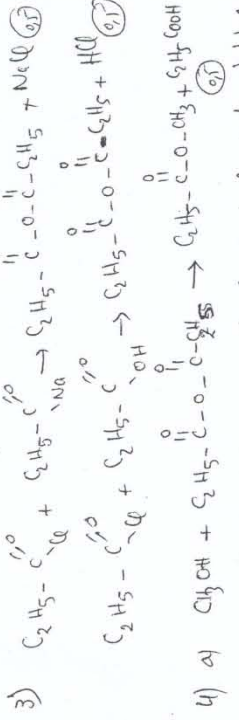 3) C2H5 – C =O – Cl + C2H5 – C =O \ Na → C2H5 – C – O – C – C2H5 + NaCl 0,5
O O O O
C2H5 – C – Cl + C2H5 – C \ OH → C2H5 – C – O – C – C2H5 + HCl 0,5
O O O
4) a) CH3OH + C2H5 – C – O – C – C2H5 → C2H5 – C – O – CH3 + C2H5COOH 0,5